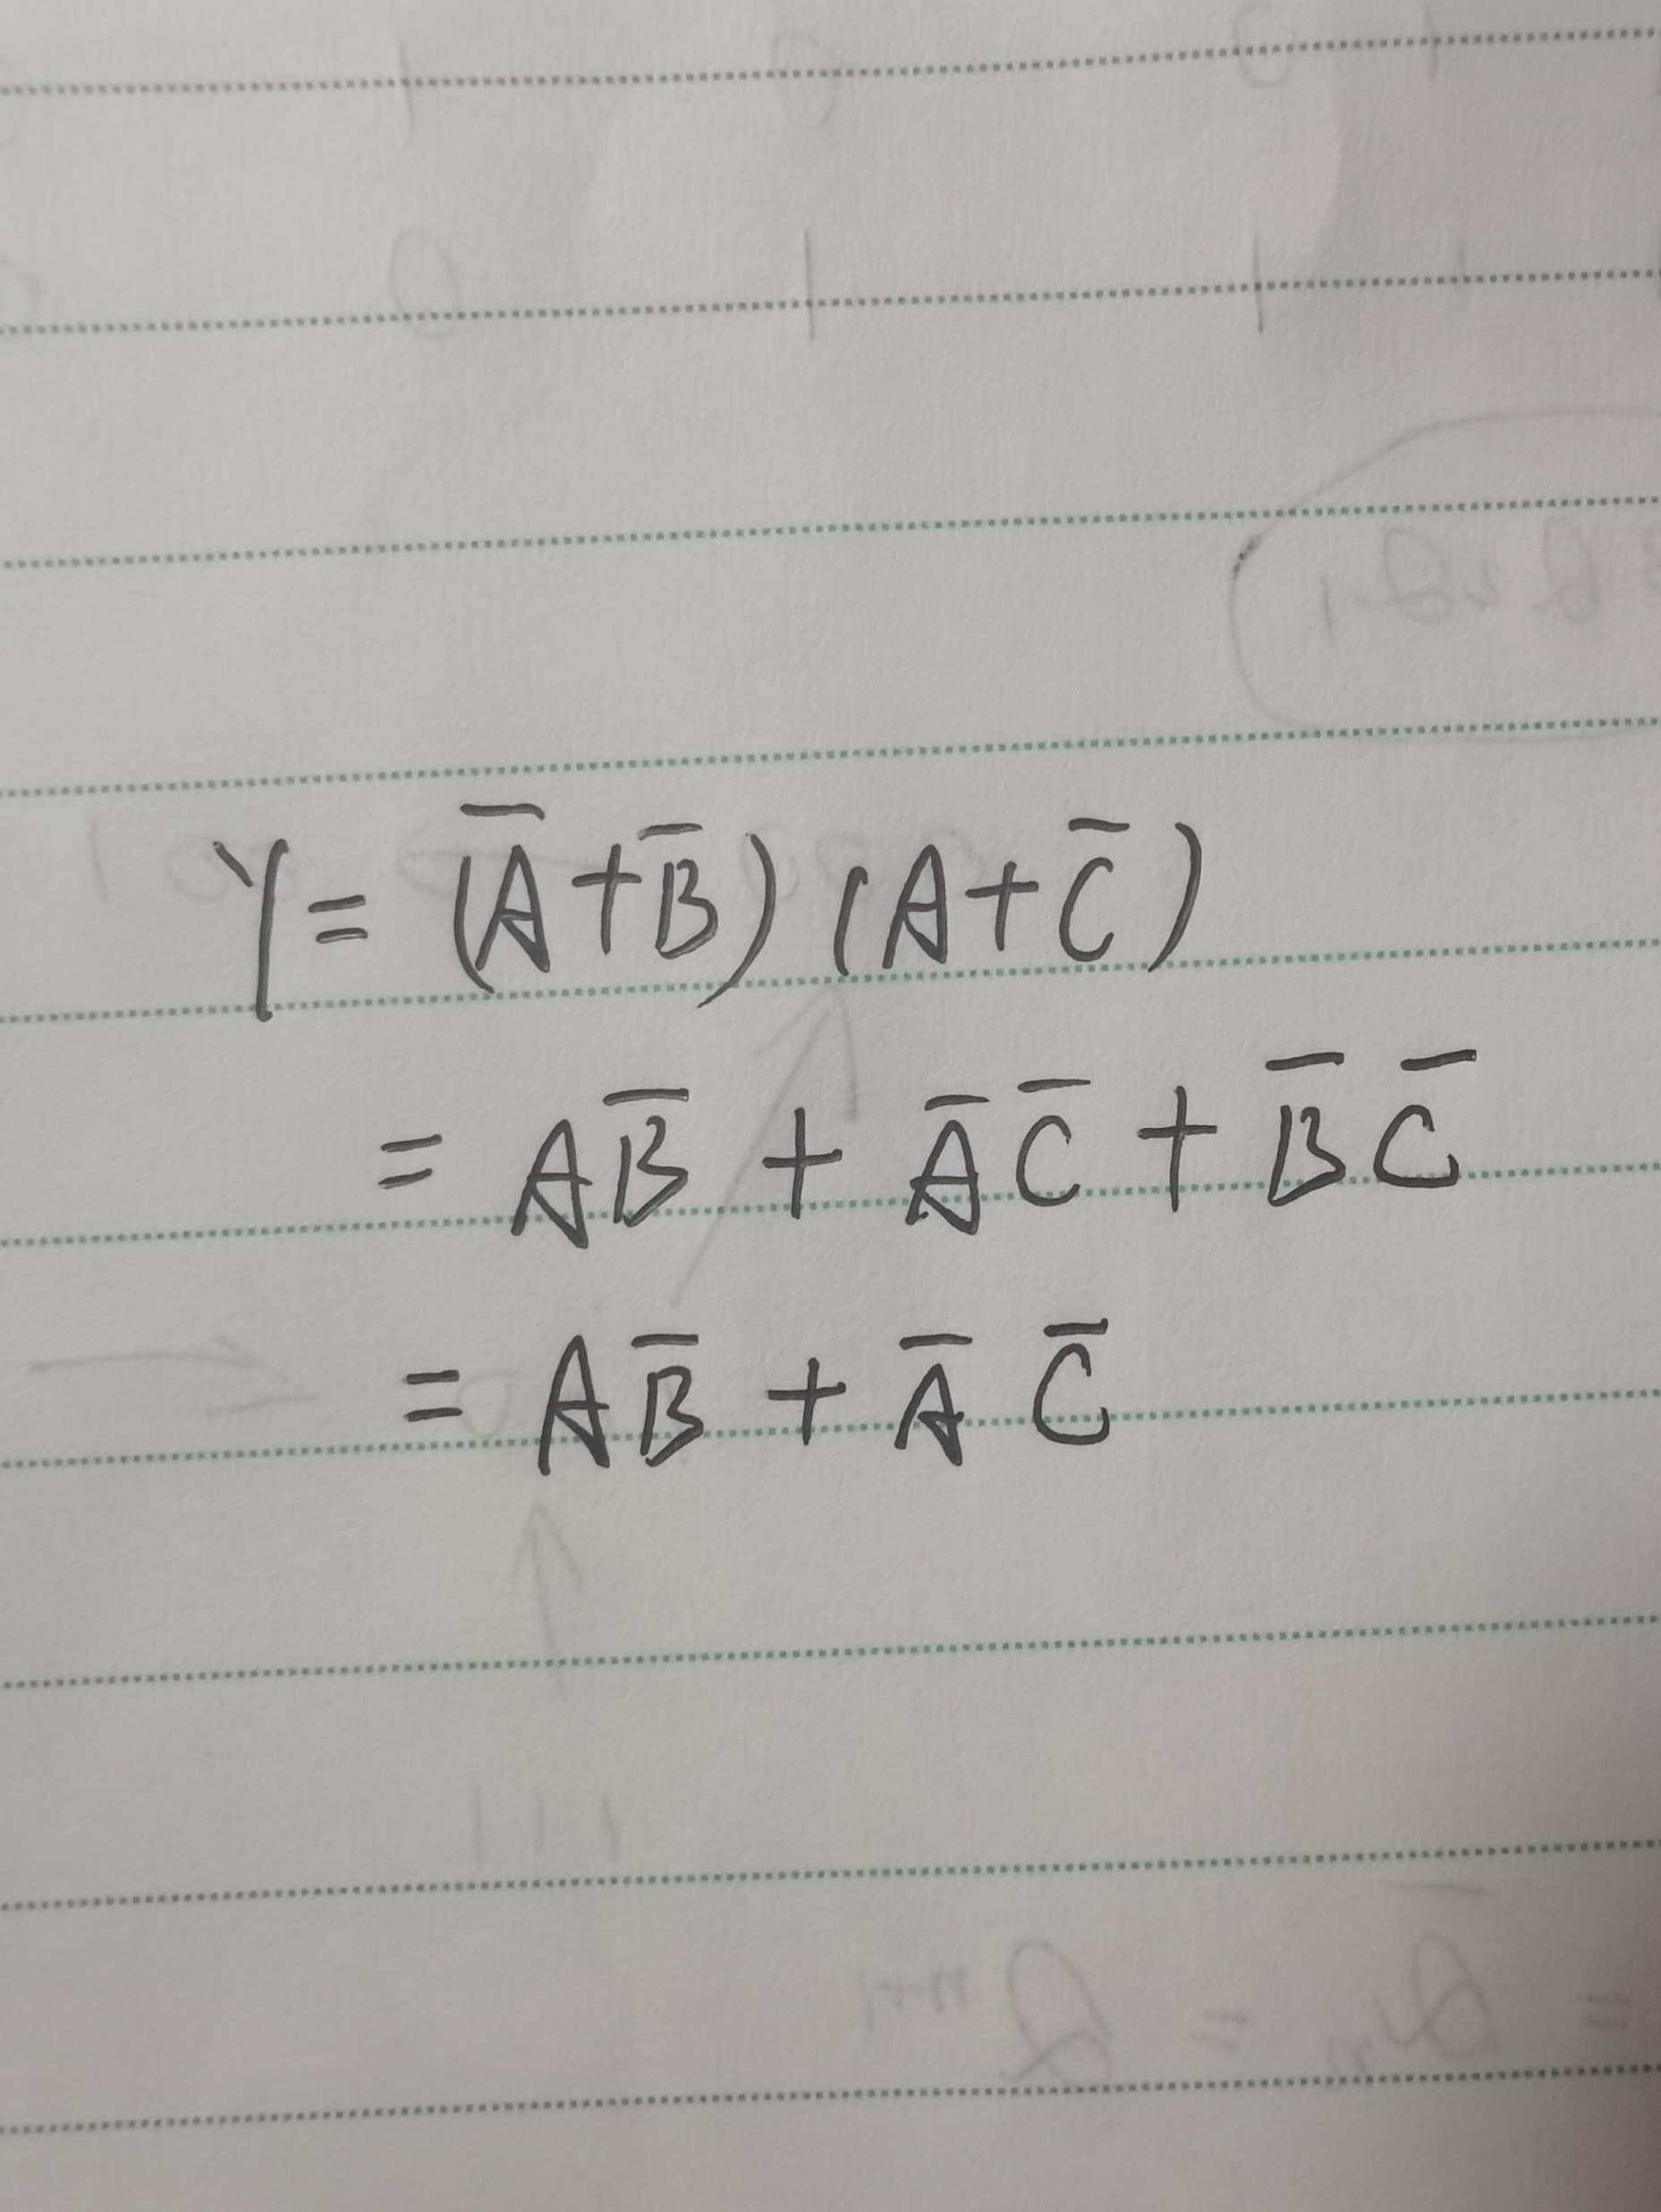 Y = (A̅ + B̅)(A + C̅)
= AB̅ + A̅C̅ + B̅C̅
= AB̅ + A̅C̅